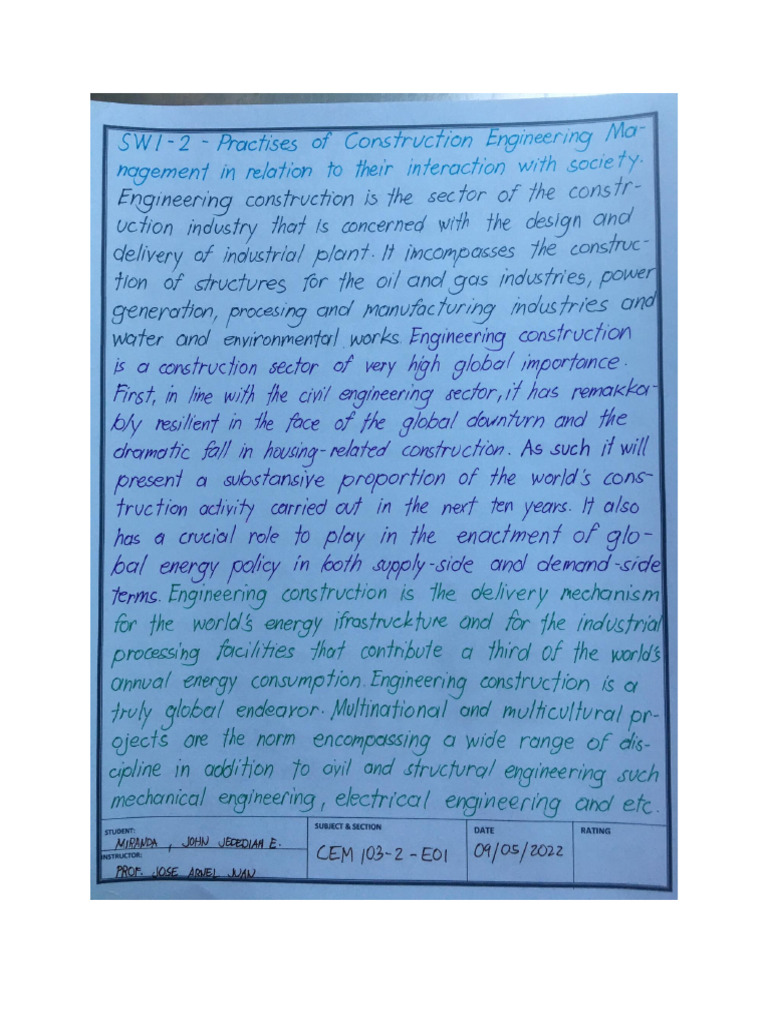 SW1-2 - Practises of Construction Engineering Ma-
nagement in relation to their interaction with society.
Engineering construction is the sector of the constr-
uction industry that is concerned with the design and
delivery of industrial plant. It imcompasses the construc-
tion of structures for the oil and gas industries, power
generation, procesing and manufacturing industries and
water and environmental works. Engineering construction
is a construction sector of very high global importance.
First, in line with the civil engineering sector, it has remakka-
bly resilient in the face of the global downturn and the
dramatic fall in housing-related construction. As such it will
present a substansive proportion of the world's cons-
truction activity carried out in the next ten years. It also
has a crucial role to play in the enactment of glo-
bal energy policy in both supply-side and demand-side
terms. Engineering construction is the delivery mechanism
for the world's energy ifrastruckture and for the industrial
processing facilities that contribute a third of the world's
annual energy consumption. Engineering construction is a
truly global endeavor. Multinational and multicultural pr-
ojects are the norm encompassing a wide range of dis-
cipline in addition to civil and structural engineering such
mechanical engineering, electrical engineering and etc.
STUDENT:
MIRANDA, JOHN JEDEDIAH E.
INSTRUCTOR:
PROF. JOSE ARNEL JUAN
SUBJECT & SECTION
CEM 103-2-E01
DATE
09/05/2022
RATING